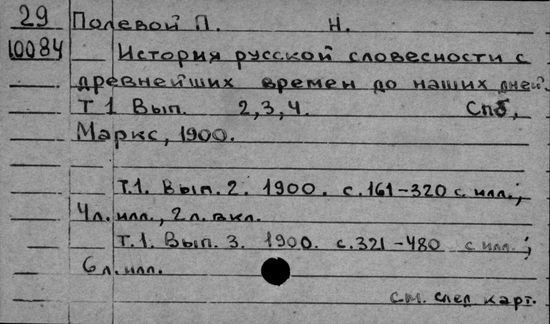 29 Полевой П. Н.
10084 История русской словесности с
древнейших времен до наших дней.
Т 1 Вып. 2, 3, 4. Спб,
Маркс, 1900.
Т.1. Вып. 2. 1900. с.161-320 с илл.;
4 л. илл., 2 л. вкл.
Т.1. Вып. 3. 1900. с.321-480 с илл.;
6 л. илл.
см. след карт.